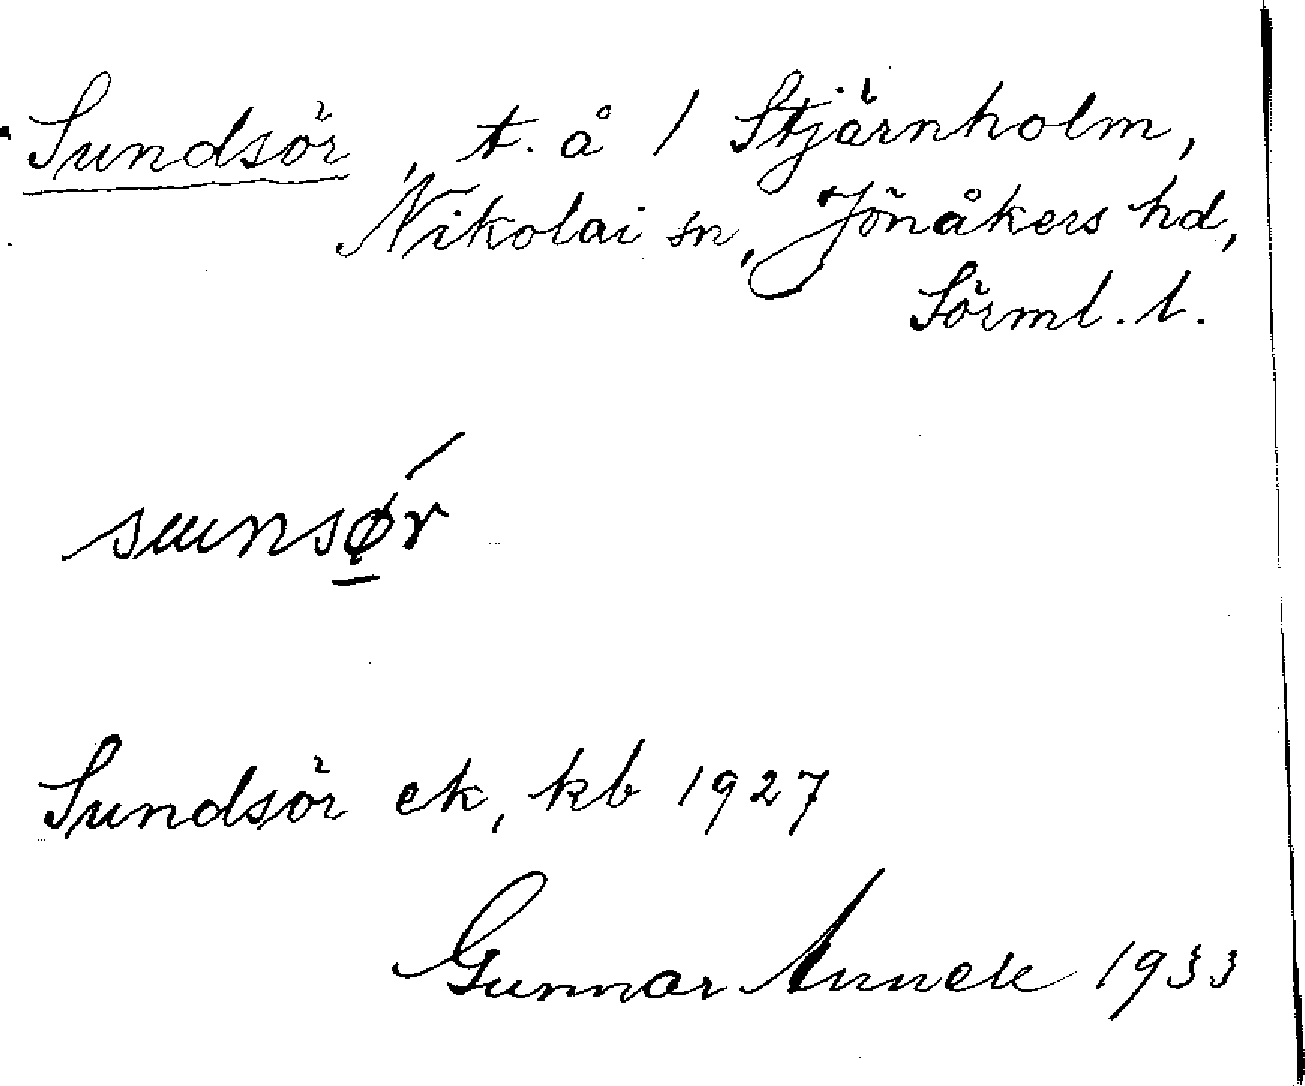 Sundsör, t. å 1 Stjärnholm,
Nikolai sn, Jönåkers hd,
Sörml. l.
Sundsör ek, kb 1927
Gunnar 1933